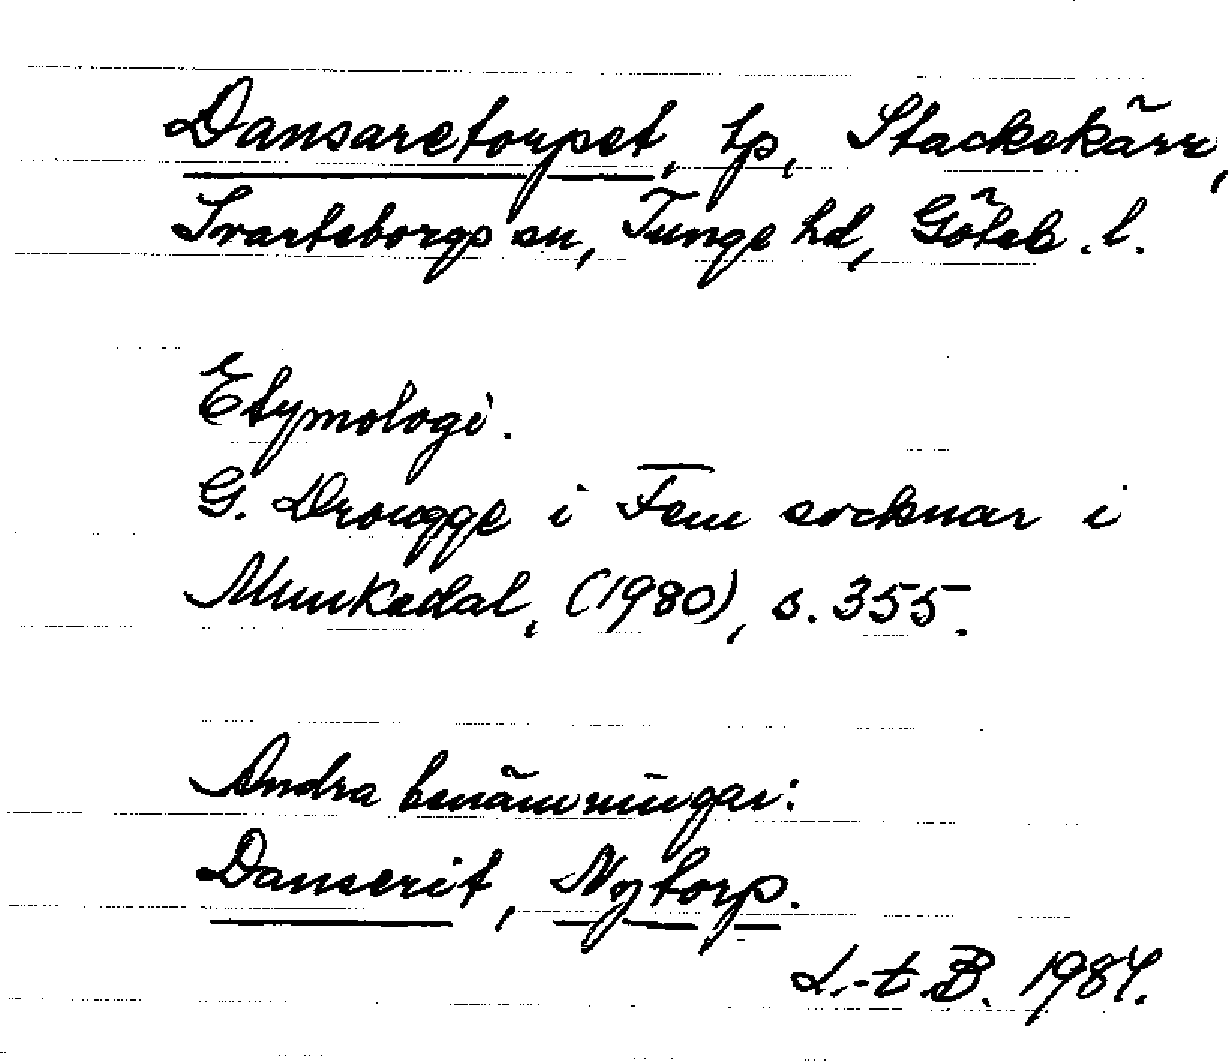 Dansaretorpet, tp, Stackekärr,
Svarteborgs sn, Tunge hd, Göteb. l.
Etymologi.
G. Drougge i Fem socknar i
Munkedal, (1980), s. 355.
Andra benämningar:
Danserit, Nytorp.
1984.